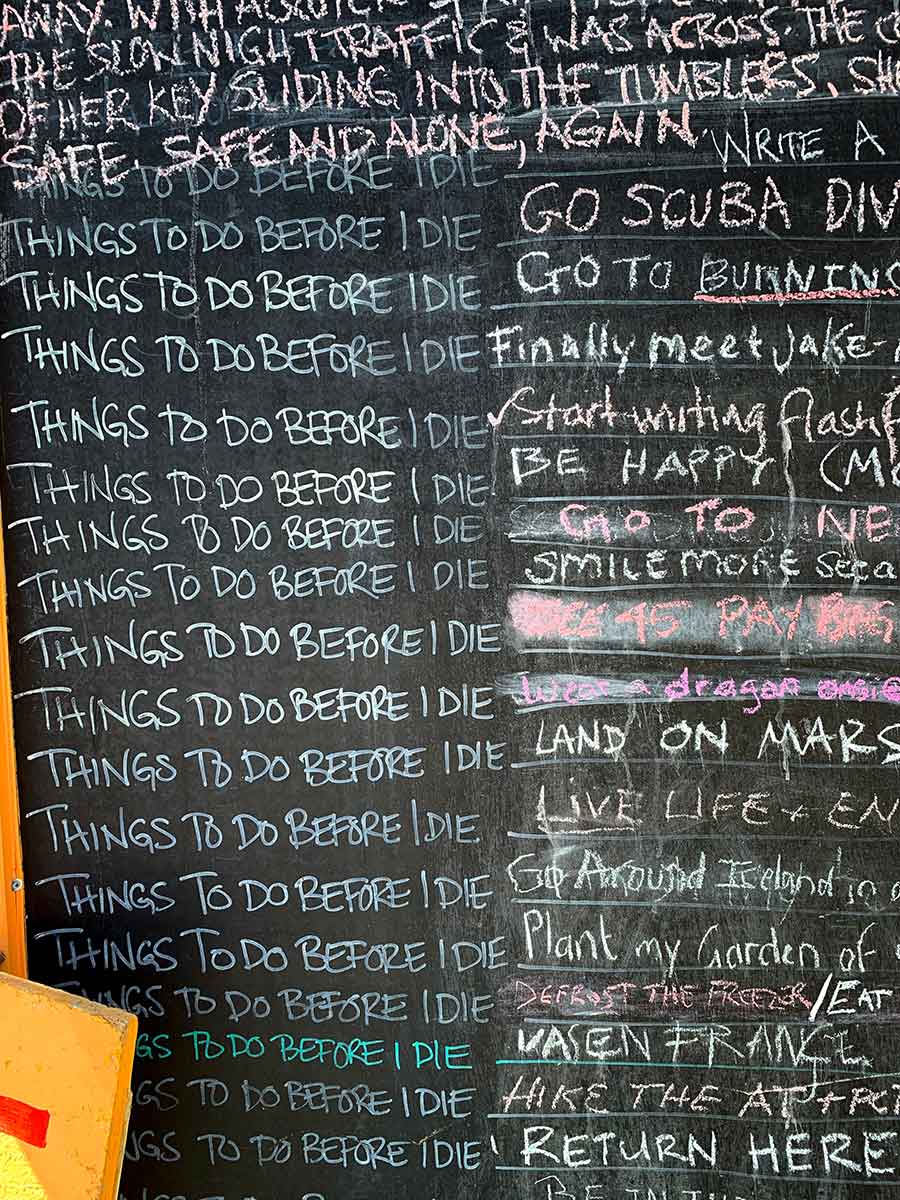 AWAY. WITH
THE SLOW NIGHT TRAFFIC & WAS ACROSS. THE
OF HER KEY SLIDING INTO THE TUMBLERS. SH
SAFE. SAFE AND ALONE, AGAIN.
THINGS TO DO BEFORE I DIE WRITE A
THINGS TO DO BEFORE I DIE GO SCUBA DIV
THINGS TO DO BEFORE I DIE GO TO BURNING
THINGS TO DO BEFORE I DIE Finally meet Jake
THINGS TO DO BEFORE I DIE Start writing flash f
THINGS TO DO BEFORE I DIE BE HAPPY (MO
THINGS TO DO BEFORE I DIE GO TO NE
THINGS TO DO BEFORE I DIE SMILE MORE
THINGS TO DO BEFORE I DIE 45 PAY
THINGS TO DO BEFORE I DIE Wear a dragon onsie
THINGS TO DO BEFORE I DIE LAND ON MARS
THINGS TO DO BEFORE I DIE LIVE LIFE + EN
THINGS TO DO BEFORE I DIE Go Around Ireland in a
THINGS TO DO BEFORE I DIE Plant my Garden of
THINGS TO DO BEFORE I DIE DEFROST THE FREEZER/EAT
GS TO DO BEFORE I DIE FRANCE
GS TO DO BEFORE I DIE HIKE THE AT + PC
NGS TO DO BEFORE I DIE RETURN HERE